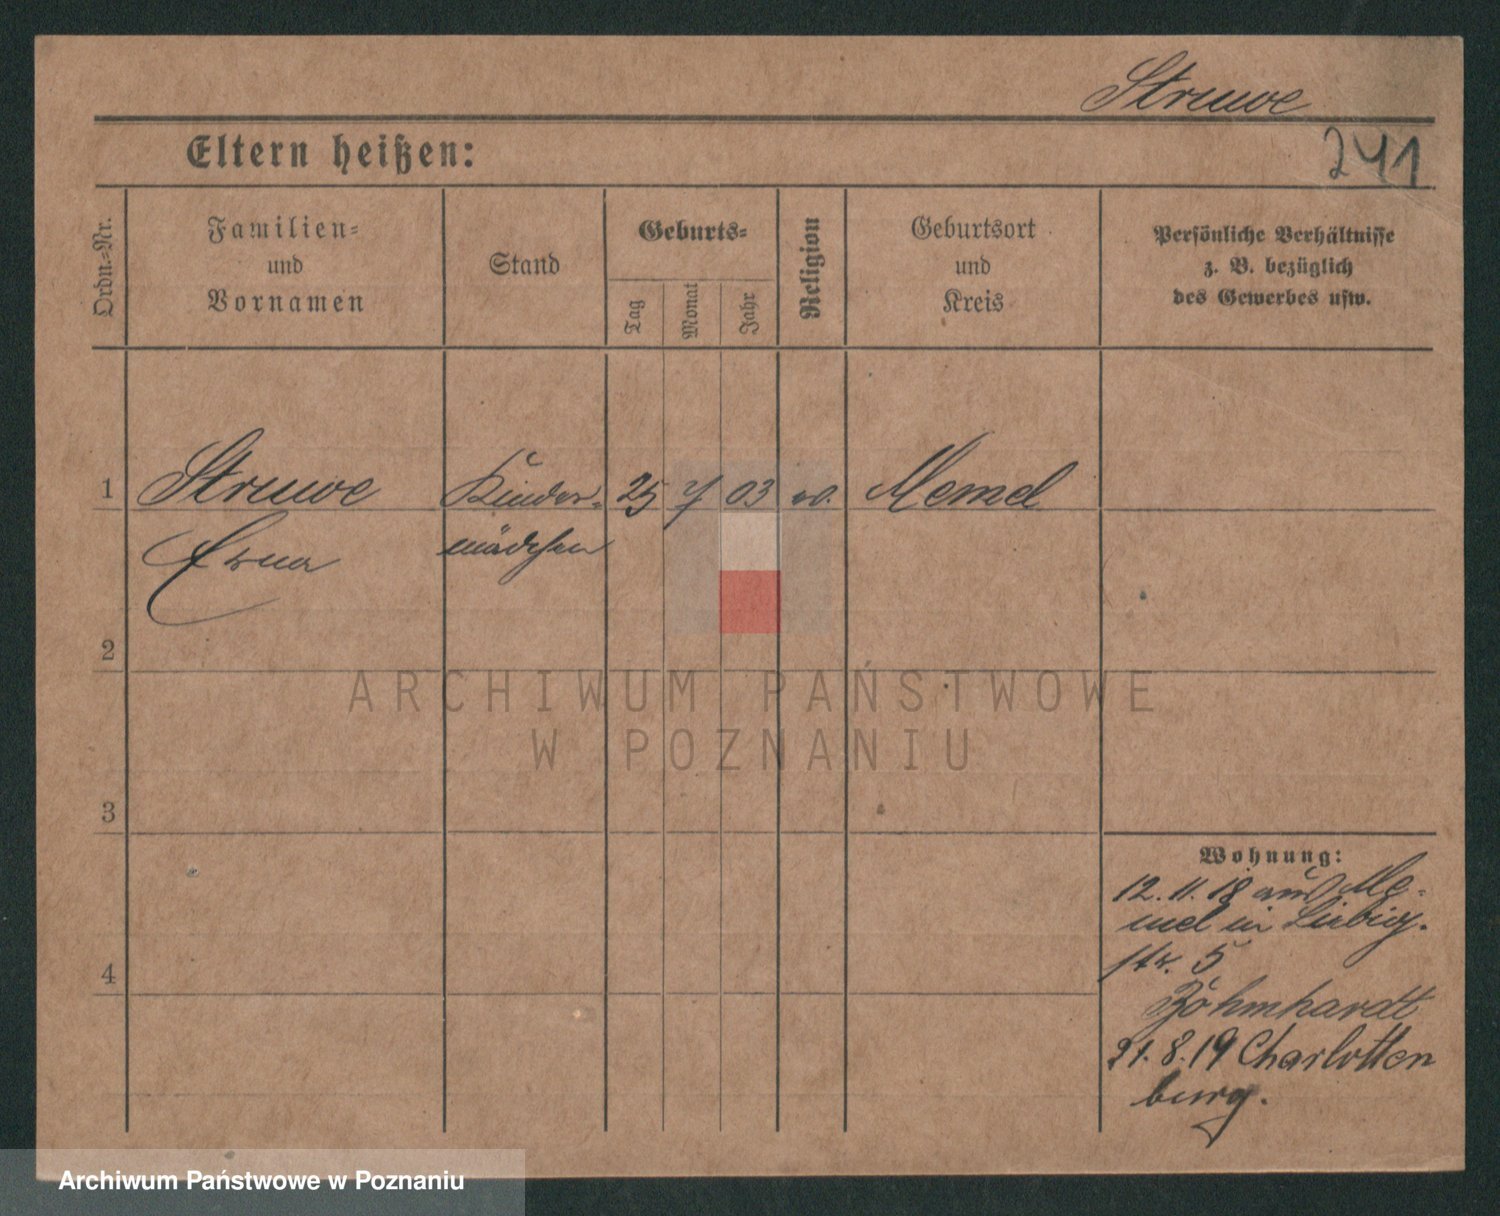 Struwe
241
Eltern heißen:
Ordn.-Nr.
Familien-
und
Vornamen
Stand
Geburts-
Tag
Monat
Jahr
Religion
Geburtsort
und
Kreis
Persönliche Verhältnisse
z. B. bezüglich
des Gewerbes usw.
1
Struwe
Kinder-
25
7
03
ev.
Memel
Erna
mädchen
2
ARCHIWUM PAŃSTWOWE
W POZNANIU
3
Wohnung:
12.11.18 aus Me-
mel in Liebig.
4
str. 5
Böhmhardt
21.8.19 Charlotten
burg.
Archiwum Państwowe w Poznaniu